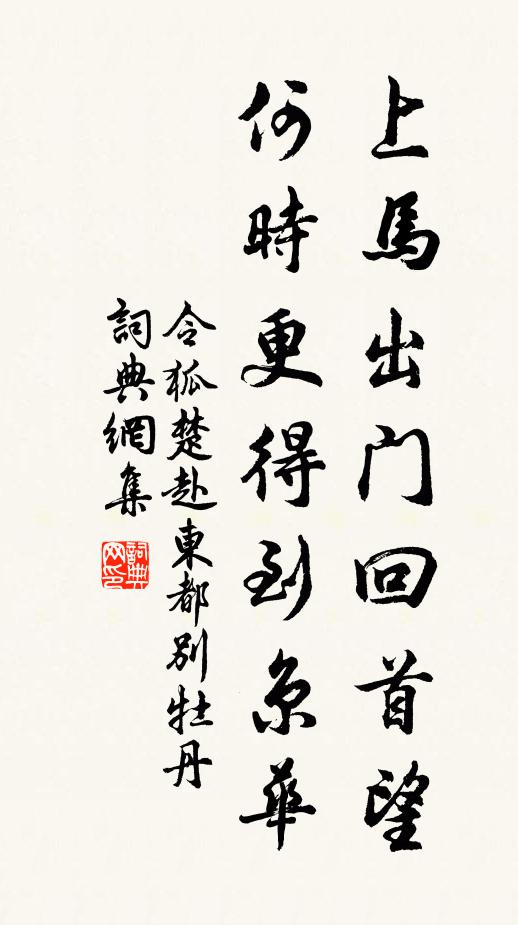 上馬出门回首望
何時更得到京華
令狐楚赴東都別牡丹
詞典網集
詞典网印